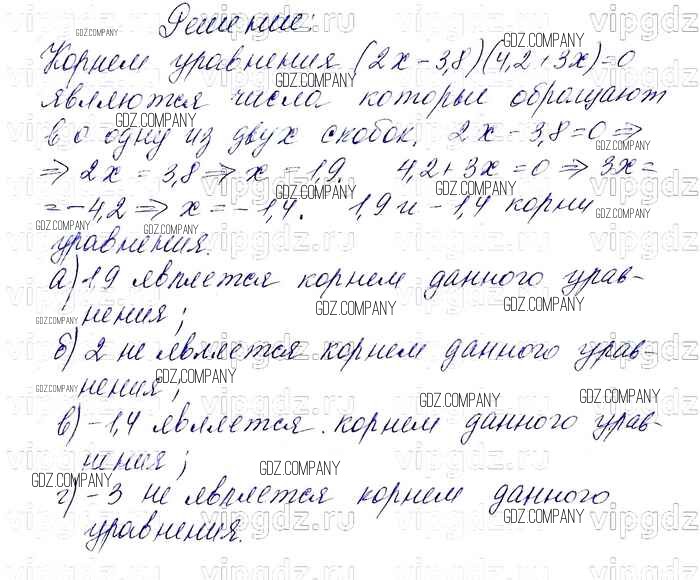 Решение:
Корнем уравнения (2x - 3,8)(4,2 + 3x) = 0
являются числа которые обращают
в 0 одну из двух скобок. 2x - 3,8 = 0 ⇒
⇒ 2x = 3,8 ⇒ x = 1,9. 4,2 + 3x = 0 ⇒ 3x =
= -4,2 ⇒ x = -1,4. 1,9 и -1,4 корни
уравнения.
а) 1,9 является корнем данного урав-
нения;
б) 2 не является корнем данного урав-
нения;
в) -1,4 является корнем данного урав-
нения;
г) -3 не является корнем данного
уравнения.